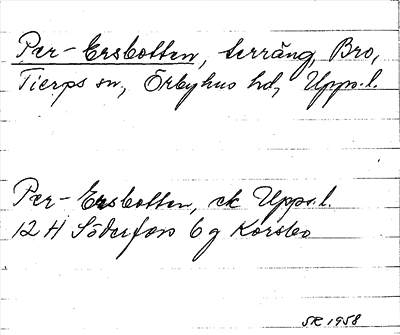 Per-Ersbotten, terräng, Bro,
Tierps sn, Örbyhus hd, Upps.l.
Per-Ersbotten, ek Upps.l.
12 H Söderfors 6 g Korsbo
SR 1958